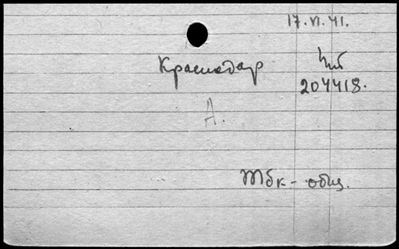 17.VI.41.
Краснодар
204418.
А.
Тбк - общ.